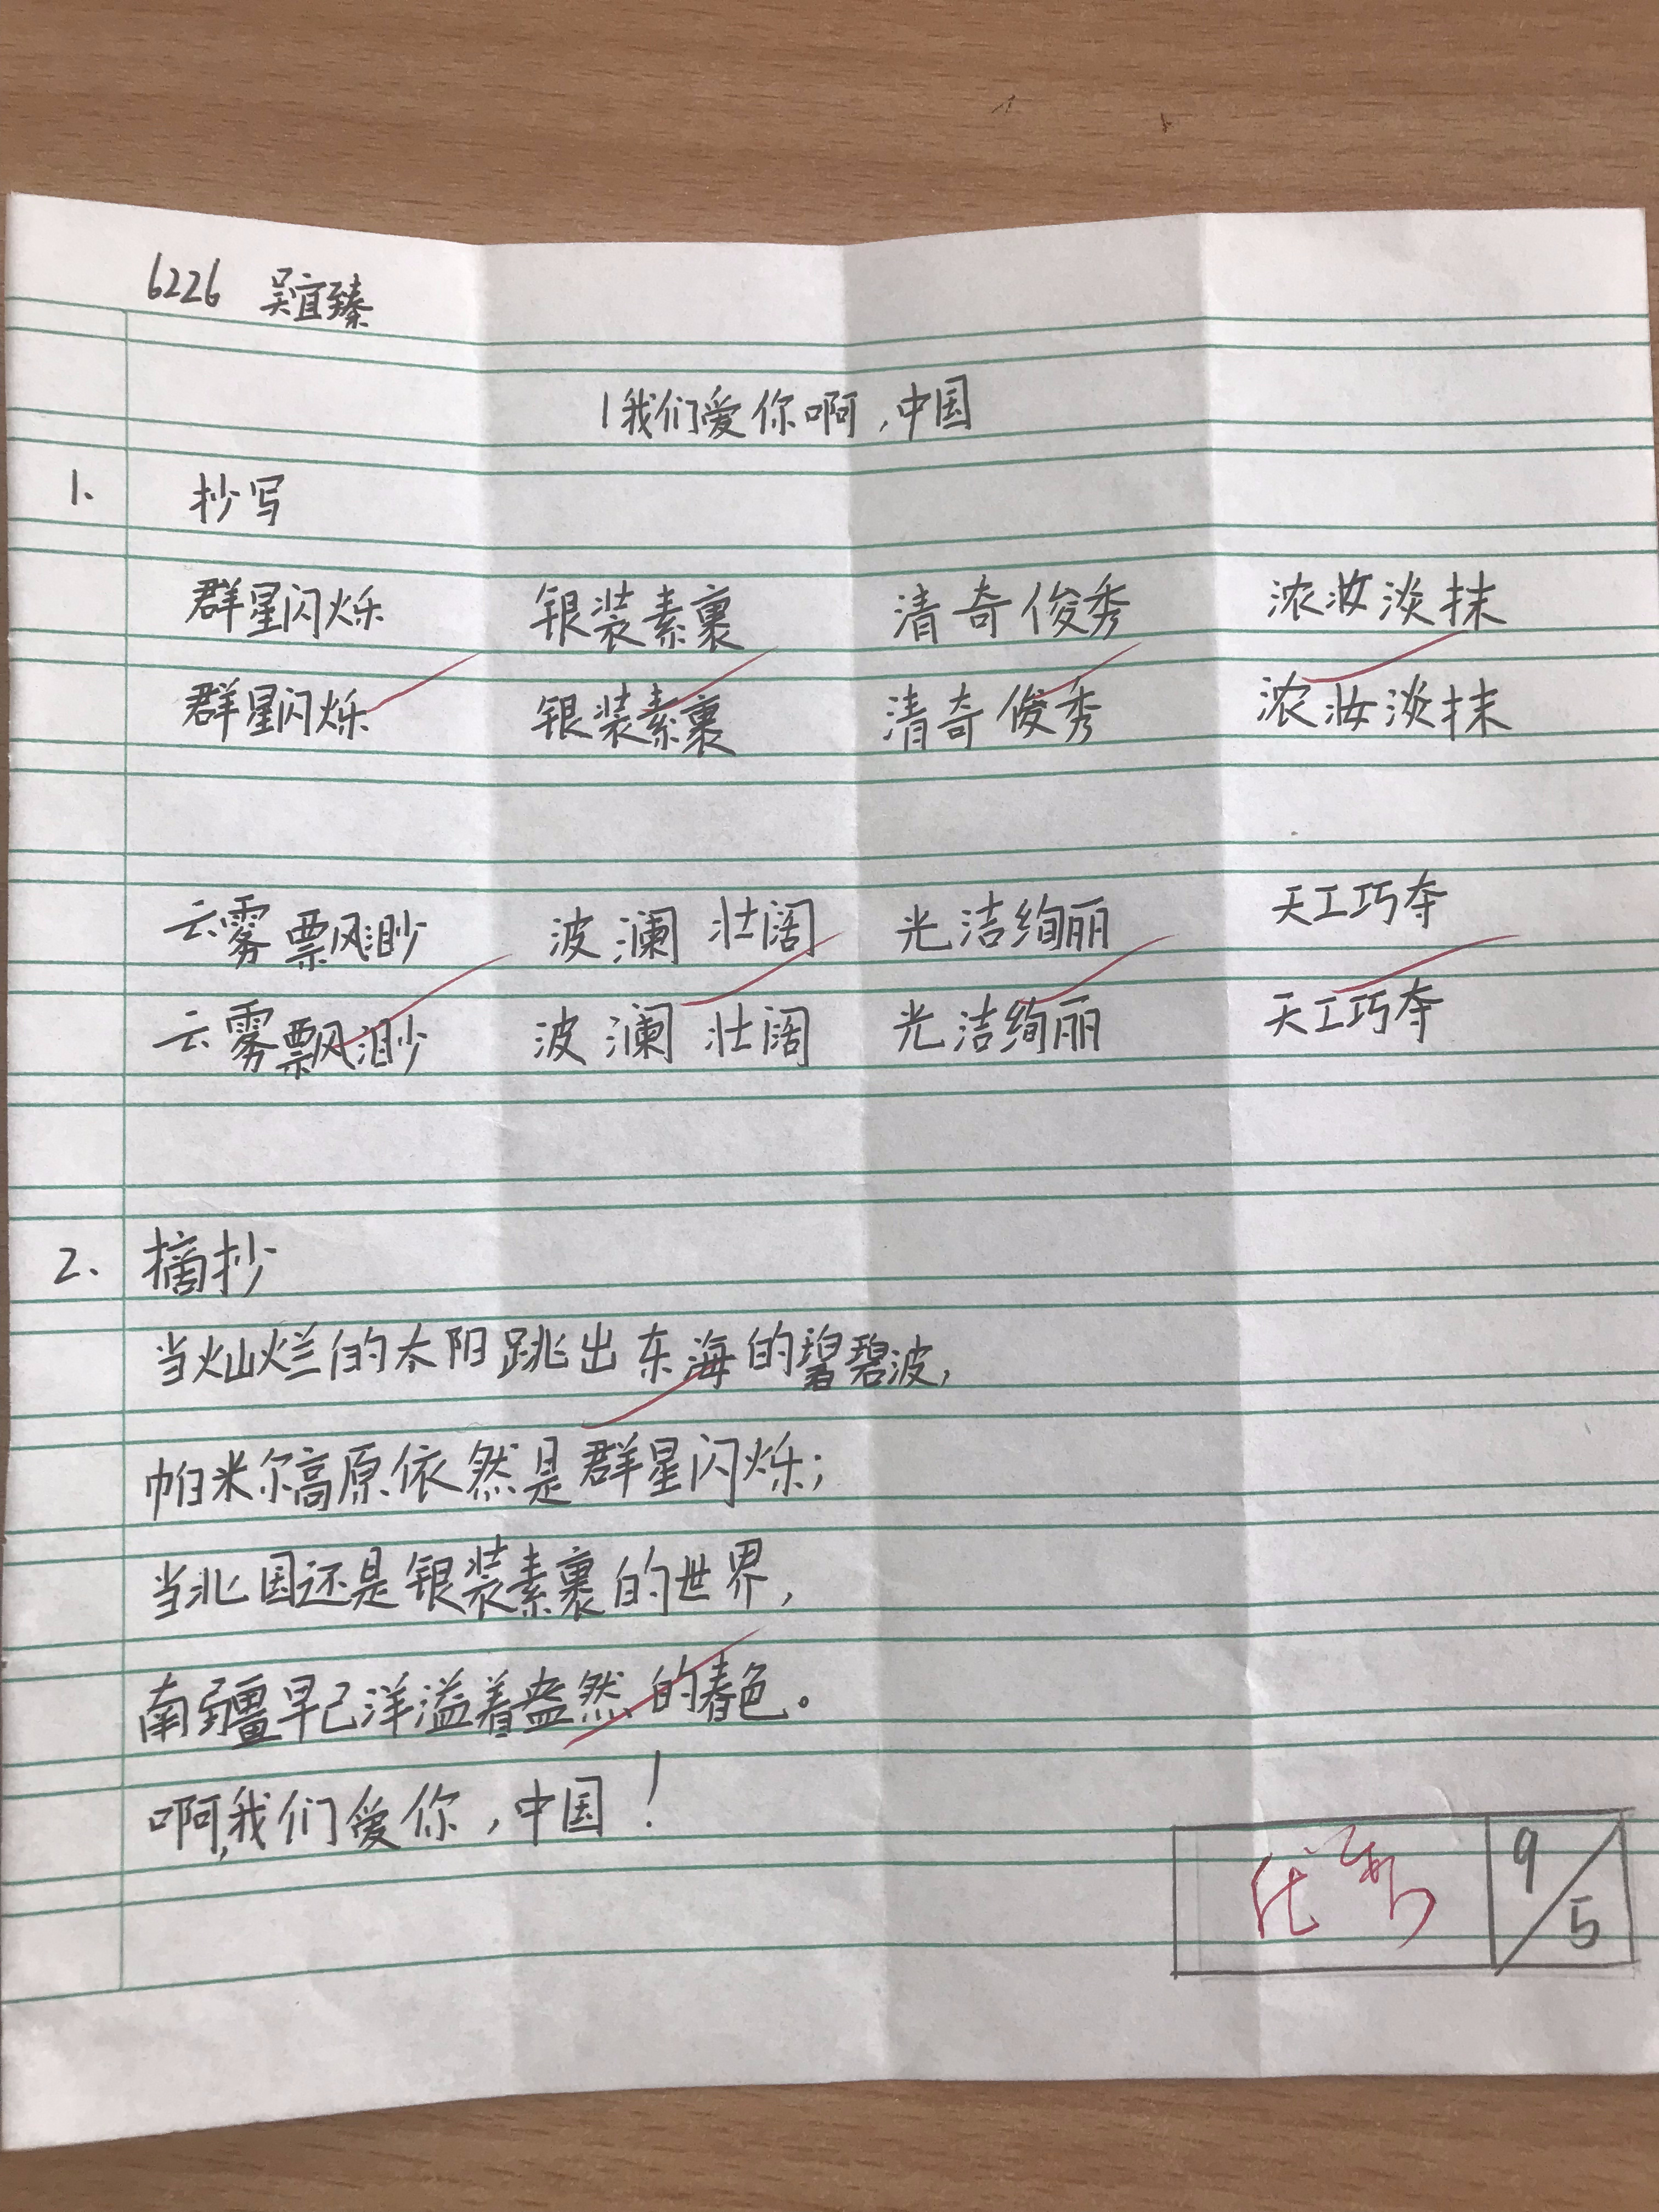 6226 吴宜臻
1 我们爱你啊,中国
1、 抄写
群星闪烁 银装素裹 清奇俊秀 浓妆淡抹
群星闪烁 银装素裹 清奇俊秀 浓妆淡抹
云雾飘渺 波澜壮阔 光洁绚丽 天工巧夺
云雾飘渺 波澜壮阔 光洁绚丽 天工巧夺
2、 摘抄
当灿烂的太阳跳出东海的碧碧波,
帕米尔高原依然是群星闪烁;
当北国还是银装素裹的世界,
南疆早已洋溢着盎然的春色。
啊,我们爱你,中国!
优秀 9/5